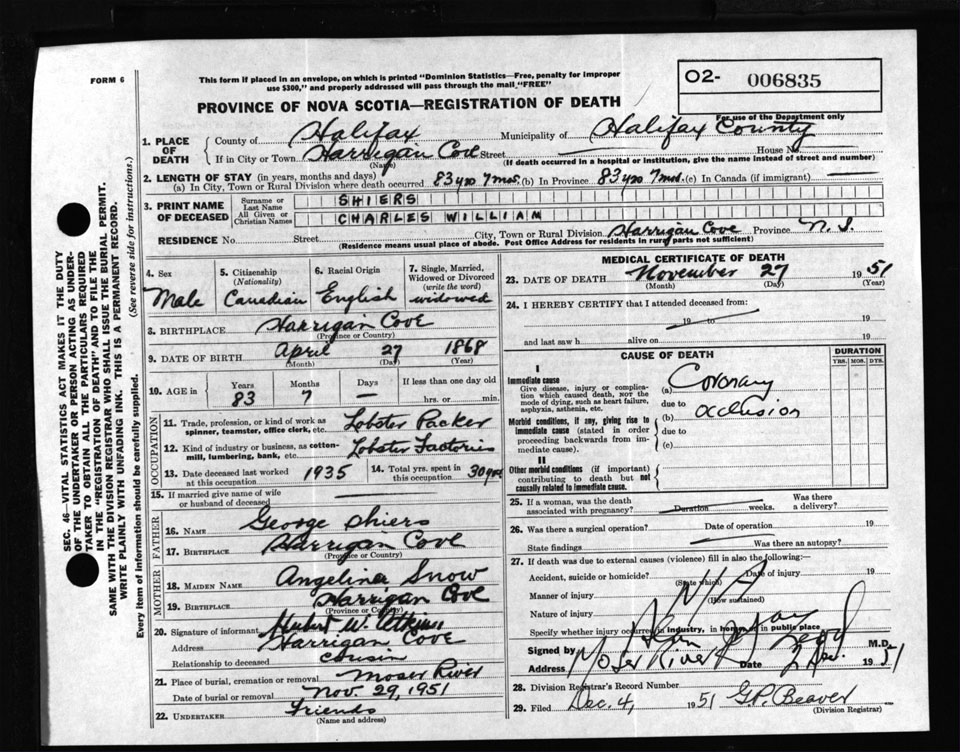 FORM 6
This form if placed in an envelope, on which is printed "Dominion Statistics—Free, penalty for improper
use $300," and properly addressed will pass through the mail "FREE"
O2- 006835
For use of the Department only
PROVINCE OF NOVA SCOTIA—REGISTRATION OF DEATH
1. PLACE OF DEATH
County of Halifax Municipality of Halifax County
If in City or Town Harrigan Cove Street House No.
(Name) (If death occurred in a hospital or institution, give the name instead of street and number)
2. LENGTH OF STAY (in years, months and days)
(a) In City, Town or Rural Division where death occurred 83 yrs 7 mos. (b) In Province 83 yrs 7 mos. (c) In Canada (if immigrant)
3. PRINT NAME OF DECEASED
Surname or Last Name SHIERS
All Given or Christian Names CHARLES WILLIAM
RESIDENCE No. Street City, Town or Rural Division Harrigan Cove Province N.S.
(Residence means usual place of abode. Post Office Address for residents in rural parts not sufficient)
4. Sex
Male
5. Citizenship (Nationality)
Canadian
6. Racial Origin
English
7. Single, Married, Widowed or Divorced (write the word)
widowed
8. BIRTHPLACE Harrigan Cove
(Province or Country)
9. DATE OF BIRTH April 27 1868
(Month) (Day) (Year)
10. AGE in
Years Months Days If less than one day old
83 7 — hrs. or min.
OCCUPATION
11. Trade, profession, or kind of work as spinner, teamster, office clerk, etc. Lobster Packer
12. Kind of industry or business, as cotton-mill, lumbering, bank, etc. Lobster Factories
13. Date deceased last worked at this occupation 1935
14. Total yrs. spent in this occupation 30 yrs
15. If married give name of wife or husband of deceased
FATHER
16. NAME George Shiers
17. BIRTHPLACE Harrigan Cove
(Province or Country)
MOTHER
18. MAIDEN NAME Angelina Snow
19. BIRTHPLACE Harrigan Cove
(Province or Country)
20. Signature of informant Hubert W. Atkins
Address Harrigan Cove
Relationship to deceased cousin
21. Place of burial, cremation or removal Moser River
Date of burial or removal Nov. 29, 1951
22. UNDERTAKER Friends
(Name and address)
MEDICAL CERTIFICATE OF DEATH
23. DATE OF DEATH November 27 1951
(Month) (Day) (Year)
24. I HEREBY CERTIFY that I attended deceased from:
19 to 19
and last saw h alive on 19
CAUSE OF DEATH
DURATION
YRS. MOS. DYS.
I
Immediate cause
Give disease, injury or complication which caused death, NOT the mode of dying, such as heart failure, asphyxia, asthenia, etc.
(a) Coronary
due to
Morbid conditions, if any, giving rise to immediate cause (stated in order proceeding backwards from immediate cause)
(b) occlusion
due to
(c)
II
Other morbid conditions (if important) contributing to death but not causally related to immediate cause.
25. If a woman, was the death associated with pregnancy? Duration weeks. Was there a delivery?
26. Was there a surgical operation? Date of operation 19
State findings Was there an autopsy?
27. If death was due to external causes (violence) fill in also the following:—
Accident, suicide or homicide? Date of injury 19
(State which)
Manner of injury
(How sustained)
Nature of injury
Specify whether injury occurred in industry, in home or in public place
Signed by M.D.
Address Moser River Date 2 Dec. 1951
28. Division Registrar's Record Number
29. Filed Dec. 4, 1951 G.P. Beaver
(Division Registrar)
SEC. 46—VITAL STATISTICS ACT MAKES IT THE DUTY
OF THE UNDERTAKER OR PERSON ACTING AS UNDER-
TAKER TO OBTAIN ALL THE PARTICULARS REQUIRED
IN THE "REGISTRATION OF DEATH" AND TO FILE THE
SAME WITH THE DIVISION REGISTRAR WHO SHALL ISSUE THE BURIAL PERMIT.
WRITE PLAINLY WITH UNFADING INK. THIS IS A PERMANENT RECORD.
Every item of information should be carefully supplied. (See reverse side for instructions.)